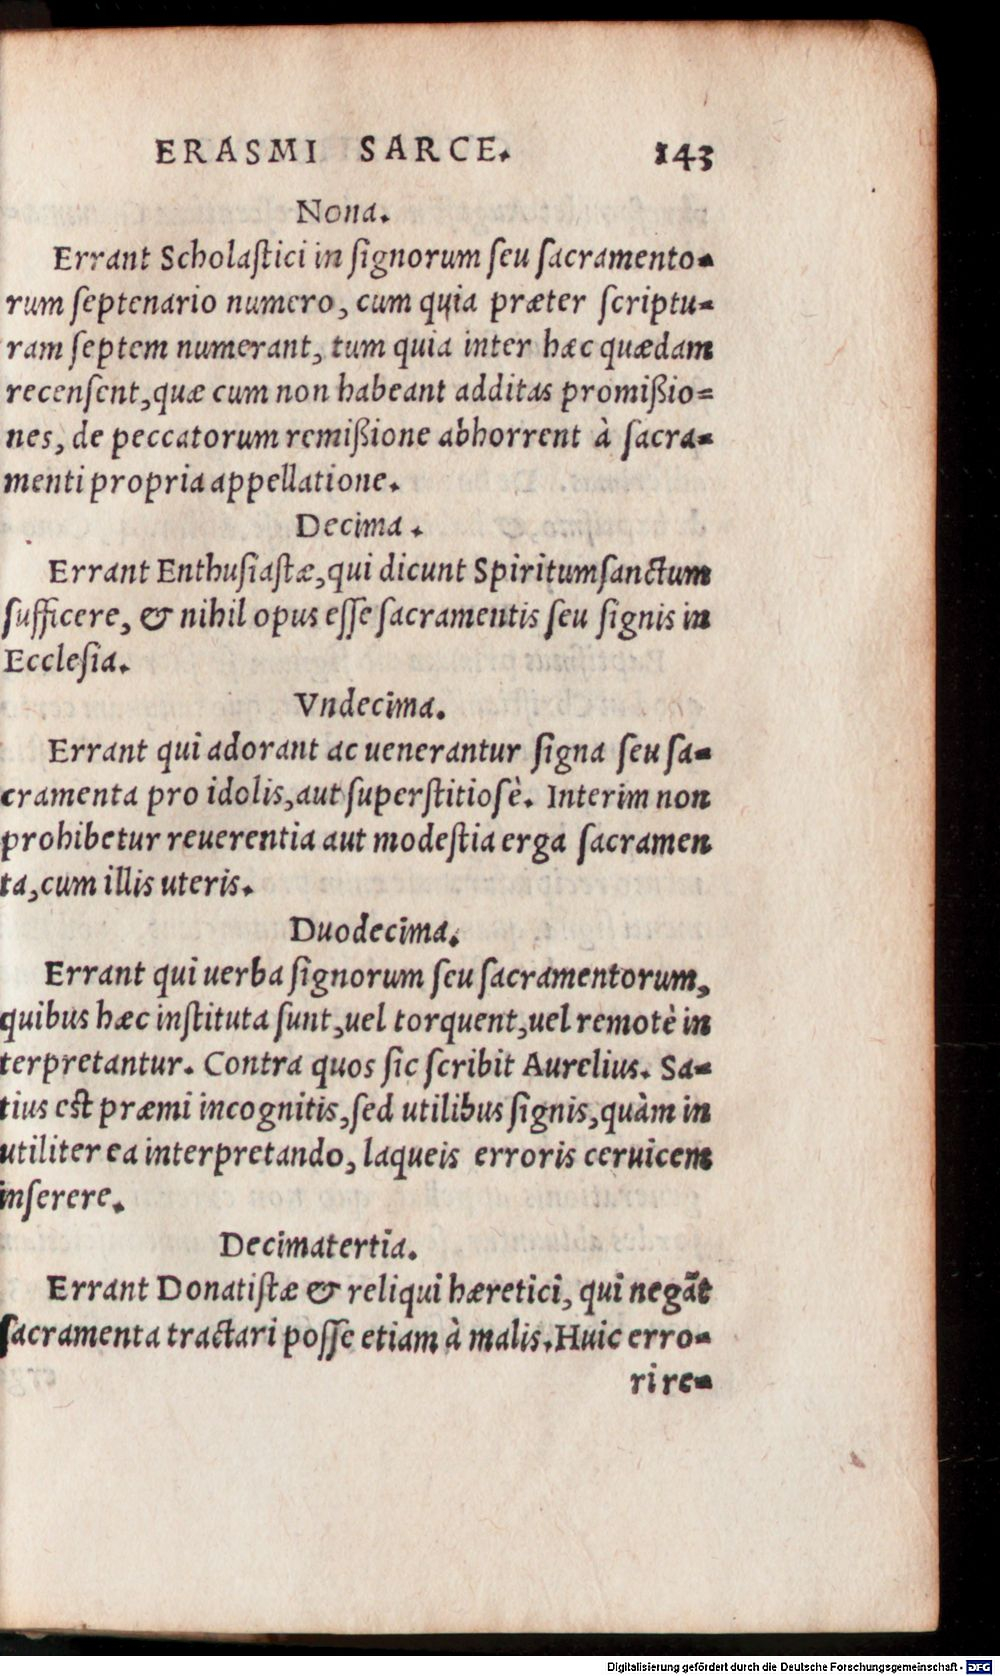 ERASMI SARCE. 143
Nona.
Errant Scholaſtici in ſignorum ſeu ſacramento-
rum ſeptenario numero, cum quia præter ſcriptu-
ram ſeptem numerant, tum quia inter hæc quædam
recenſent, quæ cum non habeant additas promißio=
nes, de peccatorum remißione abhorrent à ſacra-
menti propria appellatione.
Decima.
Errant Enthuſiaſtæ, qui dicunt Spiritumſanctum
ſufficere, & nihil opus eſſe ſacramentis ſeu ſignis in
Eccleſia.
Vndecima.
Errant qui adorant ac uenerantur ſigna ſeu ſa-
cramenta pro idolis, aut ſuperſtitioſè. Interim non
prohibetur reuerentia aut modeſtia erga ſacramen
ta, cum illis uteris.
Duodecima.
Errant qui uerba ſignorum ſeu ſacramentorum,
quibus hæc inſtituta ſunt, uel torquent, uel remotè in
terpretantur. Contra quos ſic ſcribit Aurelius. Sa-
tius eſt præmi incognitis, ſed utilibus ſignis, quàm in
utiliter ea interpretando, laqueis erroris ceruicem
inſerere.
Decimatertia.
Errant Donatiſtæ & reliqui hæretici, qui negāt
ſacramenta tractari poſſe etiam à malis. Huic erro-
ri re-
Digitalisierung gefördert durch die Deutsche Forschungsgemeinschaft - DFG